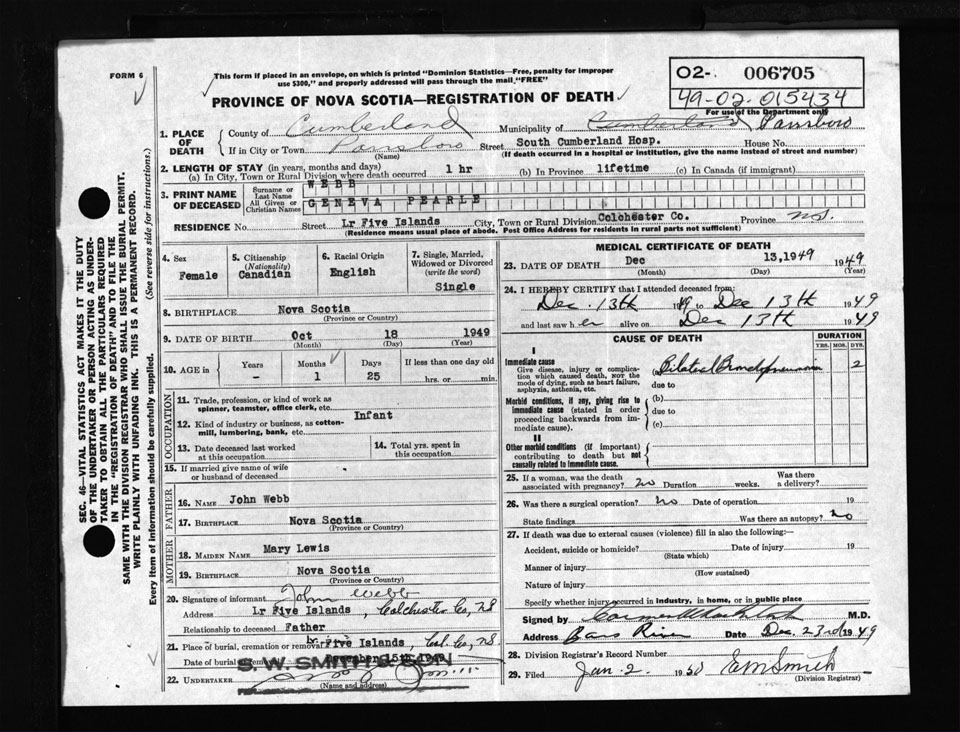 FORM 6
This form if placed in an envelope, on which is printed "Dominion Statistics—Free, penalty for improper
use $300," and properly addressed will pass through the mail, "FREE"
PROVINCE OF NOVA SCOTIA—REGISTRATION OF DEATH
O2- 006705
49-02-015434
For use of the Department only
1. PLACE OF DEATH
County of Cumberland Municipality of Cumberland Parrsboro
If in City or Town Parrsboro Street South Cumberland Hosp. House No.
(Name) (If death occurred in a hospital or institution, give the name instead of street and number)
2. LENGTH OF STAY (in years, months and days)
(a) In City, Town or Rural Division where death occurred 1 hr (b) In Province lifetime (c) In Canada (if immigrant)
3. PRINT NAME OF DECEASED
Surname or Last Name WEBB
All Given or Christian Names GENEVA PEARLE
RESIDENCE No. Street Lr Five Islands City, Town or Rural Division Colchester Co. Province N.S.
(Residence means usual place of abode. Post Office Address for residents in rural parts not sufficient)
4. Sex Female
5. Citizenship (Nationality) Canadian
6. Racial Origin English
7. Single, Married, Widowed or Divorced (write the word) Single
8. BIRTHPLACE Nova Scotia
(Province or Country)
9. DATE OF BIRTH Oct 18 1949
(Month) (Day) (Year)
10. AGE in Years – Months 1 Days 25 If less than one day old hrs. or min.
OCCUPATION
11. Trade, profession, or kind of work as spinner, teamster, office clerk, etc.
Infant
12. Kind of industry or business, as cotton-mill, lumbering, bank, etc.
13. Date deceased last worked at this occupation
14. Total yrs. spent in this occupation
15. If married give name of wife or husband of deceased
FATHER
16. NAME John Webb
17. BIRTHPLACE Nova Scotia
(Province or Country)
MOTHER
18. MAIDEN NAME Mary Lewis
19. BIRTHPLACE Nova Scotia
(Province or Country)
20. Signature of informant John Webb
Address Lr Five Islands, Colchester Co, NS
Relationship to deceased Father
21. Place of burial, cremation or removal Lr Five Islands Col. Co, NS
Date of burial December 15th 1949
S. W. SMITH & SON
22. UNDERTAKER
(Name and address)
MEDICAL CERTIFICATE OF DEATH
23. DATE OF DEATH Dec 13, 1949 1949
(Month) (Day) (Year)
24. I HEREBY CERTIFY that I attended deceased from:
Dec. 13th 1949 to Dec 13th 1949
and last saw her alive on Dec 13th 1949
CAUSE OF DEATH DURATION
YRS. MOS. DYS.
I
Immediate cause
Give disease, injury or complication which caused death, not the mode of dying, such as heart failure, asphyxia, asthenia, etc.
(a) Bilateral Bronchopneumonia 2
due to
Morbid conditions, if any, giving rise to immediate cause (stated in order proceeding backwards from immediate cause).
(b)
due to
(c)
II
Other morbid conditions (if important) contributing to death but not causally related to immediate cause.
25. If a woman, was the death associated with pregnancy? no Duration weeks. Was there a delivery?
26. Was there a surgical operation? no Date of operation 19
State findings Was there an autopsy? no
27. If death was due to external causes (violence) fill in also the following:—
Accident, suicide or homicide? Date of injury 19
(State which)
Manner of injury
(How sustained)
Nature of injury
Specify whether injury occurred in industry, in home, or in public place
Signed by M.D.
Address Date Dec. 23rd 1949
28. Division Registrar's Record Number
29. Filed Jan 2 1950 EM Smith
(Division Registrar)
SEC. 46—VITAL STATISTICS ACT MAKES IT THE DUTY
OF THE UNDERTAKER OR PERSON ACTING AS UNDER-
TAKER TO OBTAIN ALL THE PARTICULARS REQUIRED
IN THE "REGISTRATION OF DEATH" AND TO FILE THE
SAME WITH THE DIVISION REGISTRAR WHO SHALL ISSUE THE BURIAL PERMIT.
WRITE PLAINLY WITH UNFADING INK. THIS IS A PERMANENT RECORD.
Every item of information should be carefully supplied. (See reverse side for instructions.)